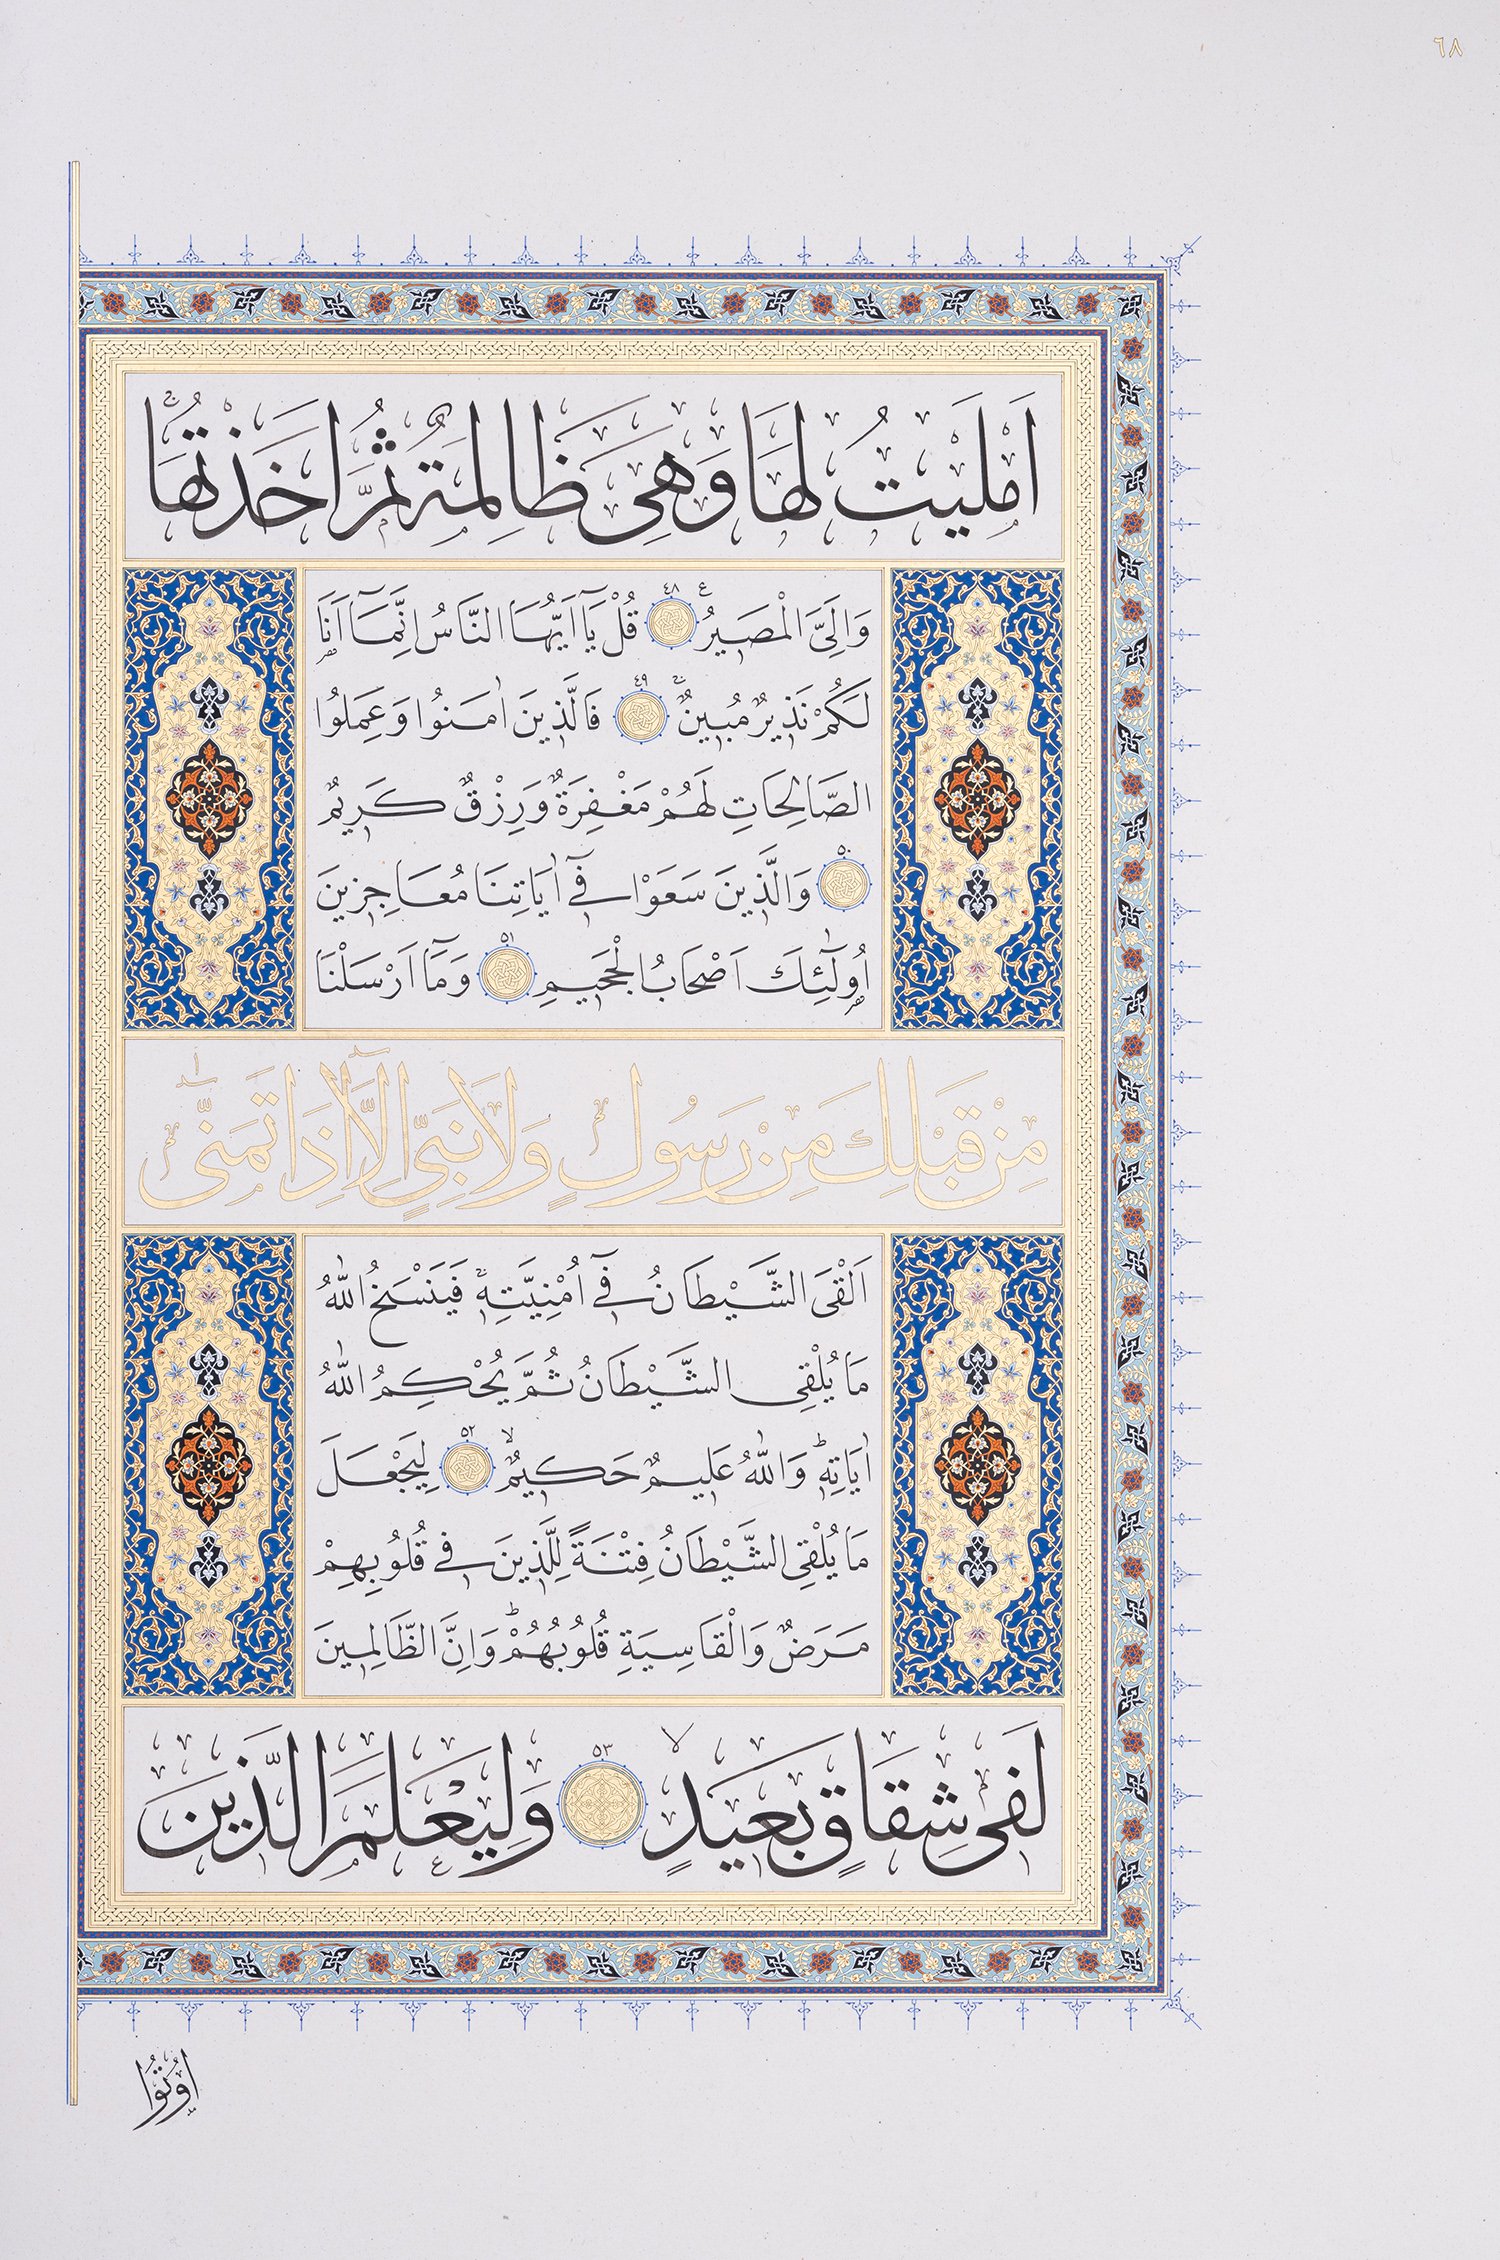 ٦٨
اَمْلَيْتُ لَهَا وَهِيَ ظَالِمَةٌ ثُمَّ اَخَذْتُهَاۚ
وَاِلَيَّ الْمَصٖيرُ ع ٤٨ قُلْ يَٓا اَيُّهَا النَّاسُ اِنَّمَٓا اَنَا۬
لَكُمْ نَذٖيرٌ مُبٖينٌۚ ٤٩ فَالَّذٖينَ اٰمَنُوا وَعَمِلُوا
الصَّالِحَاتِ لَهُمْ مَغْفِرَةٌ وَرِزْقٌ كَرٖيمٌ
٥٠ وَالَّذٖينَ سَعَوْا فٖٓي اٰيَاتِنَا مُعَاجِزٖينَ
اُو۬لٰٓئِكَ اَصْحَابُ الْجَحٖيمِ ٥١ وَمَٓا اَرْسَلْنَا
مِنْ قَبْلِكَ مِنْ رَسُولٍ وَلَا نَبِيٍّ اِلَّٓا اِذَا تَمَنّٰٓى
اَلْقَى الشَّيْطَانُ فٖٓي اُمْنِيَّتِهٖۚ فَيَنْسَخُ اللّٰهُ
مَا يُلْقِي الشَّيْطَانُ ثُمَّ يُحْكِمُ اللّٰهُ
اٰيَاتِهٖؕ وَاللّٰهُ عَلٖيمٌ حَكٖيمٌۙ ٥٢ لِيَجْعَلَ
مَا يُلْقِي الشَّيْطَانُ فِتْنَةً لِلَّذٖينَ فٖي قُلُوبِهِمْ
مَرَضٌ وَالْقَاسِيَةِ قُلُوبُهُمْؕ وَاِنَّ الظَّالِمٖينَ
لَفٖي شِقَاقٍ بَعٖيدٍۙ ٥٣ وَلِيَعْلَمَ الَّذٖينَ
اُو۫تُوا